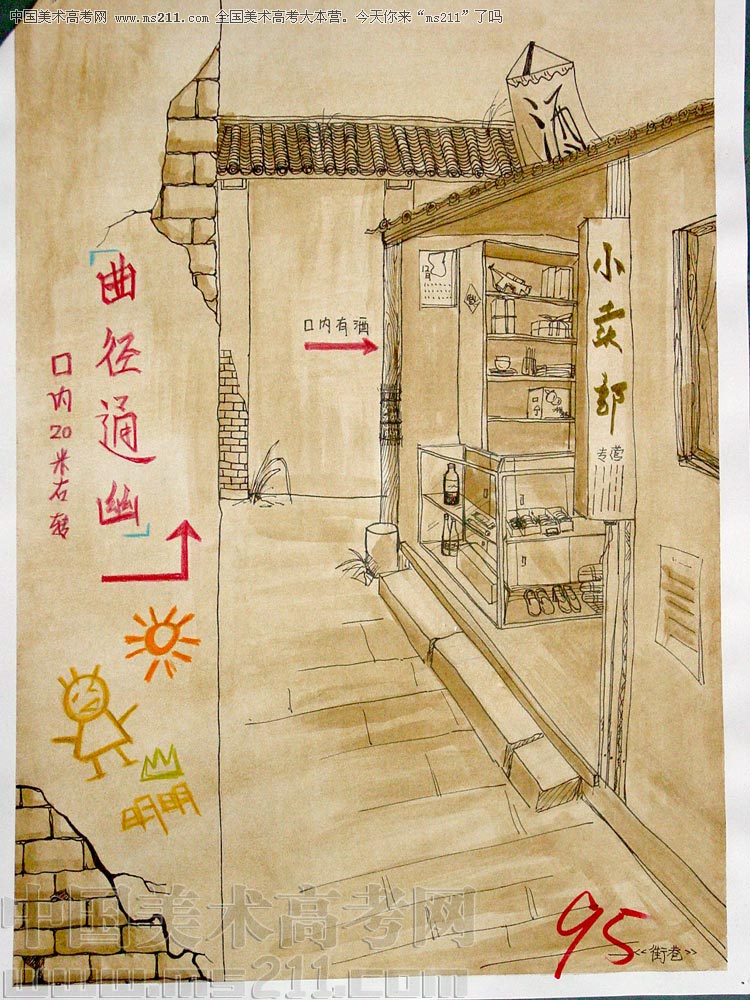 中国美术高考网 www.ms211.com 全国美术高考大本营。今天你来“ms211”了吗
酒
「曲径通幽」
口内20米右转
口内有酒
小卖部
专营
明明
95
<<街巷>>
中国美术高考网
www.ms211.com